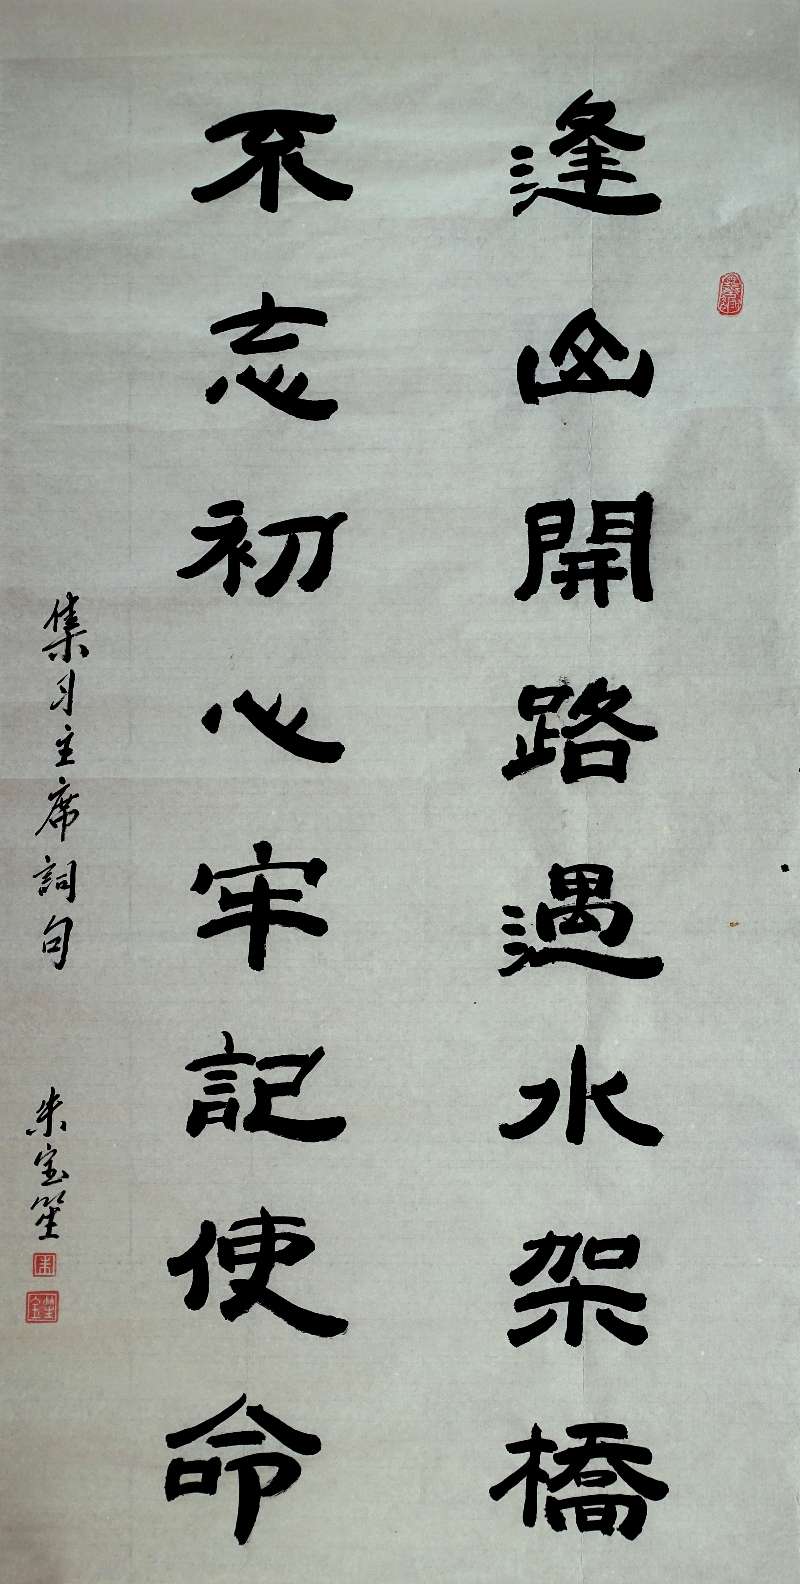 逢山開路遇水架橋
不忘初心牢記使命
集习主席詞句
朱宝笙